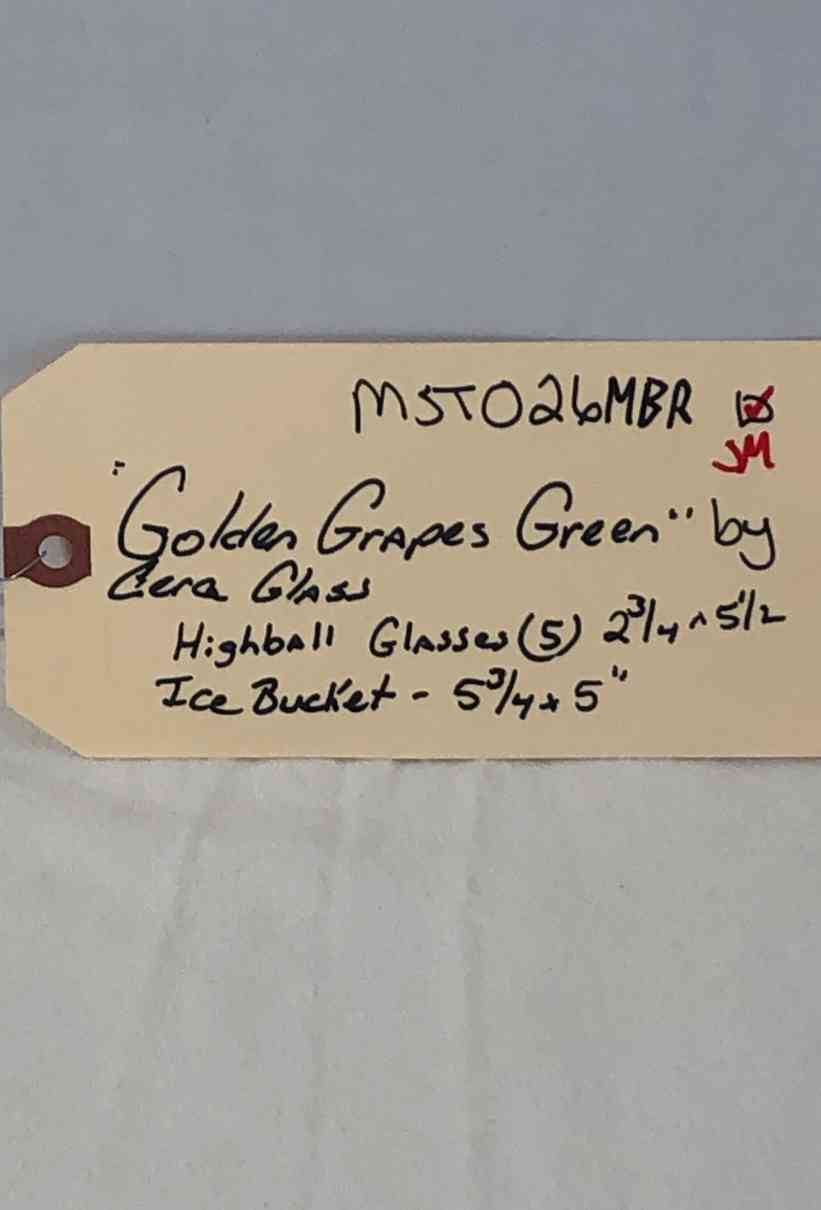 MST026MBR ☑
JM
"Golden Grapes Green" by
Cera Glass
Highball Glasses (5) 2 3/4 x 5 1/2"
Ice Bucket - 5 3/4 x 5"